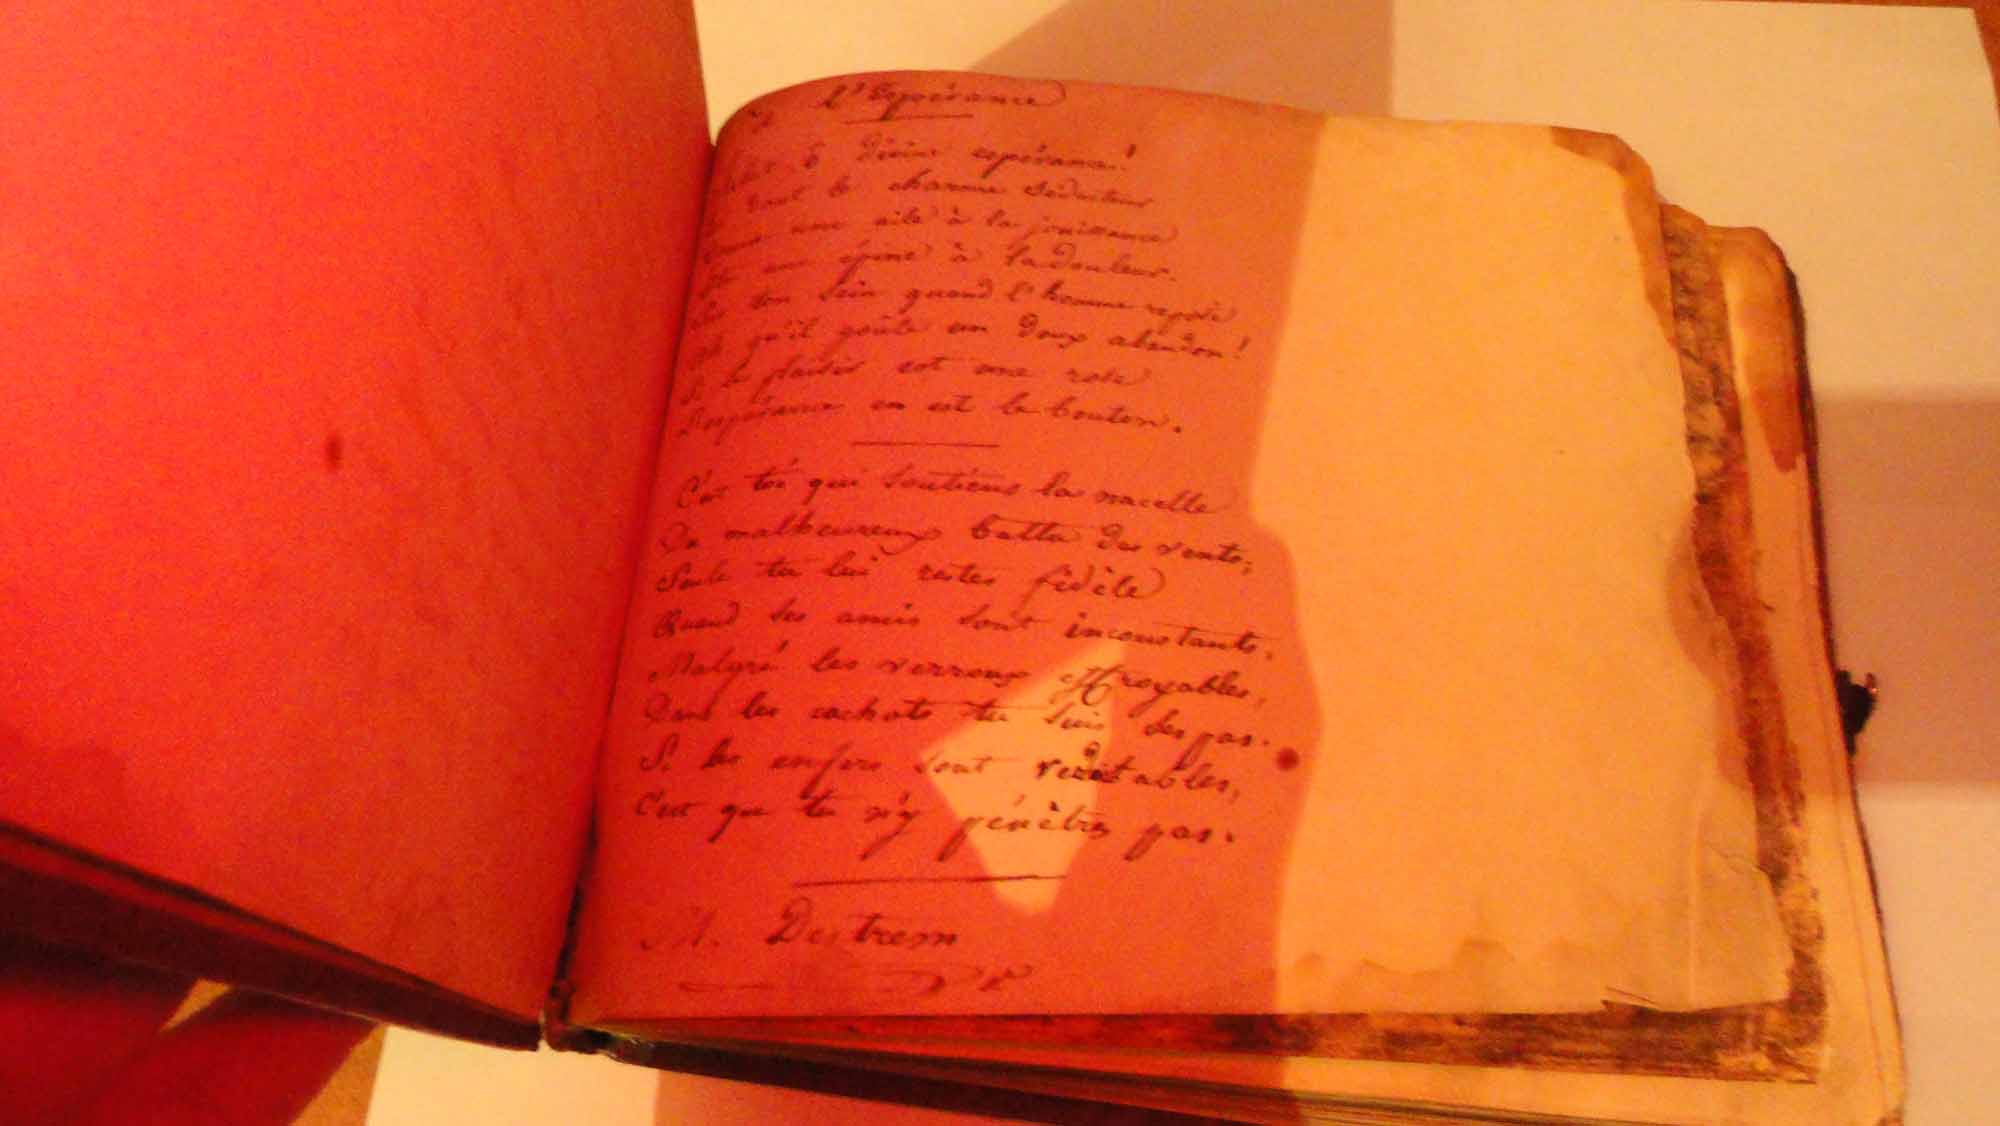 L'Espérance
Salut ô divine espérance!
dont le charme séducteur
une aile à la jouissance
une épine à la douleur.
ton sein quand l'homme repose
qu'il goûte un doux abandon!
Si le plaisir est une rose
L'espérance en est le bouton.
C'est toi qui soutiens la nacelle
Du malheureux battu des vents;
Seule tu lui restes fidèle
Quand ses amis sont inconstants.
Malgré les verroux effroyables,
Dans les cachots tu suis ses pas.
Si les enfers sont redoutables,
C'est que tu n'y pénètres pas.
M. Destrem